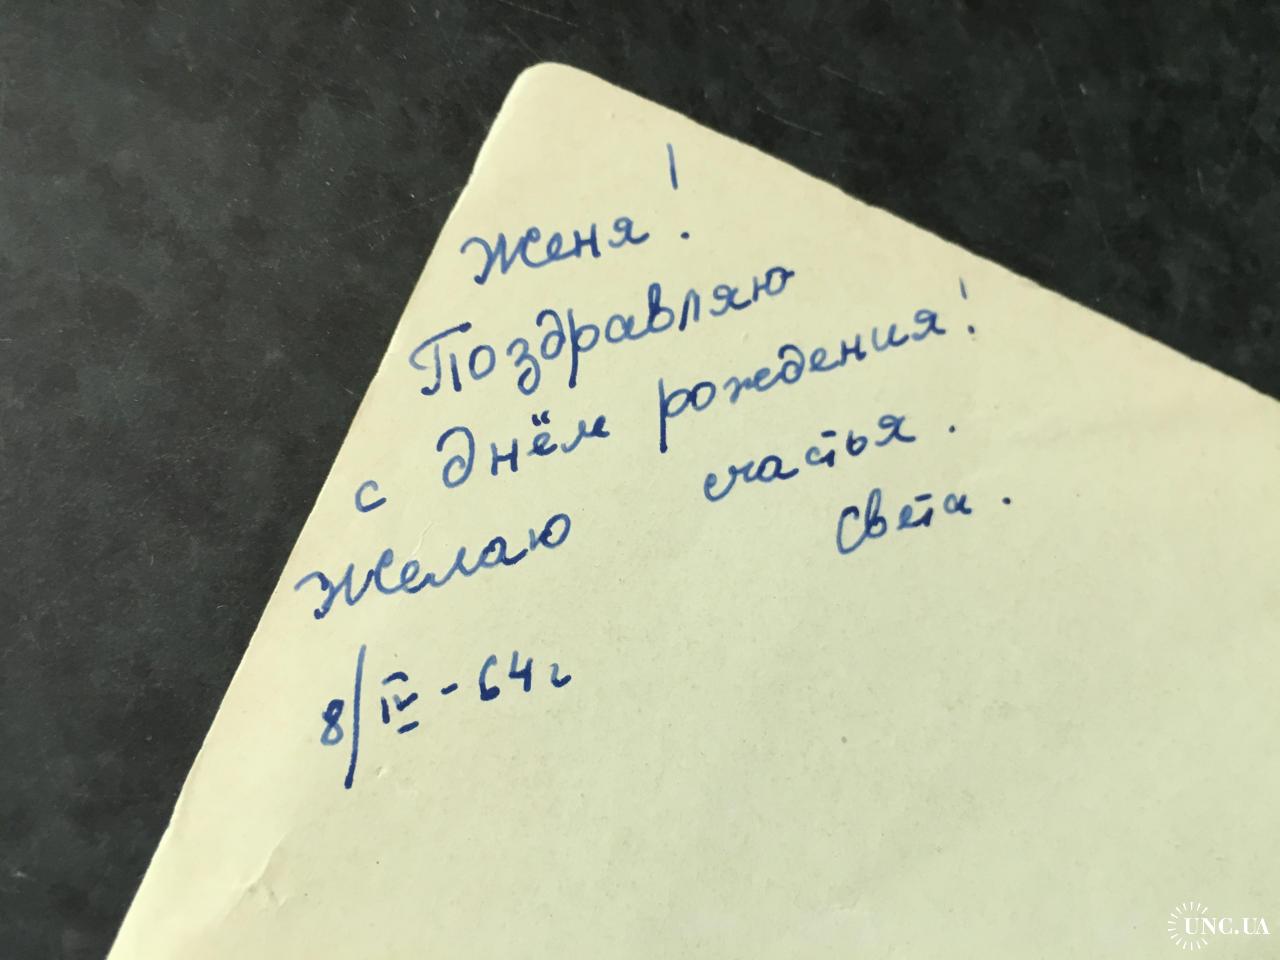 Женя!
Поздравляю
с днём рождения!
Желаю счастья.
Света.
8/IV-64г
UNC.UA